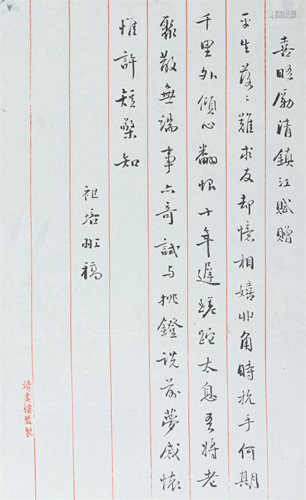 喜晤勵清鎮江賦贈
平生落々難求友却憶相嬉丱角時抗手何期
千里外傾心翻恨十年遲蹉跎太息吾將老
聚散無端事亦奇試与挑鐙說前夢感懷
惟許短檠知
祖 稿
讀畫樓監製